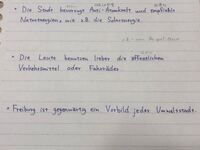 • Die Stadt bevorzugt Anti-Atomkraft und empfiehlt
Naturenergien, wie z.B. die Solarenergie.
• Die Leute benutzen lieber die öffentlichen
Verkehrsmittel oder Fahrräder.
• Freiburg ist gegenwärtig ein Vorbild jeder Umweltstadt.